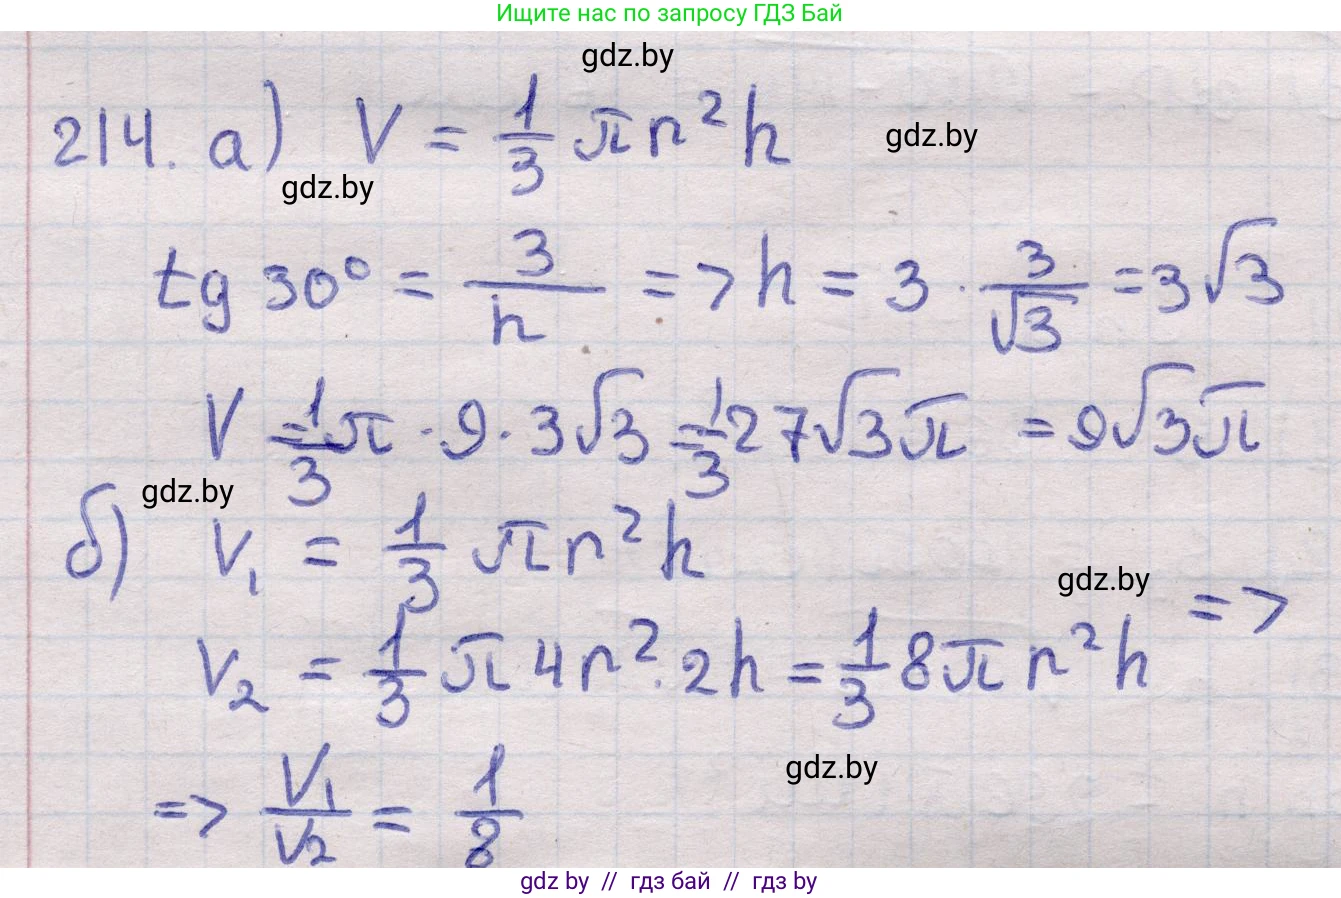 Ищите нас по запросу ГДЗ Бай
gdz.by
214. а) V = 1/3 π r² h
gdz.by
gdz.by
tg 30° = 3/h => h = 3 · 3/√3 = 3√3
V = 1/3 π · 9 · 3√3 = 1/3 27√3 π = 9√3 π
gdz.by
б) V₁ = 1/3 π r² h
gdz.by
V₂ = 1/3 π 4r² · 2h = 1/3 8 π r² h =>
gdz.by
=> V₁/V₂ = 1/8
gdz by // гдз бай // гдз by